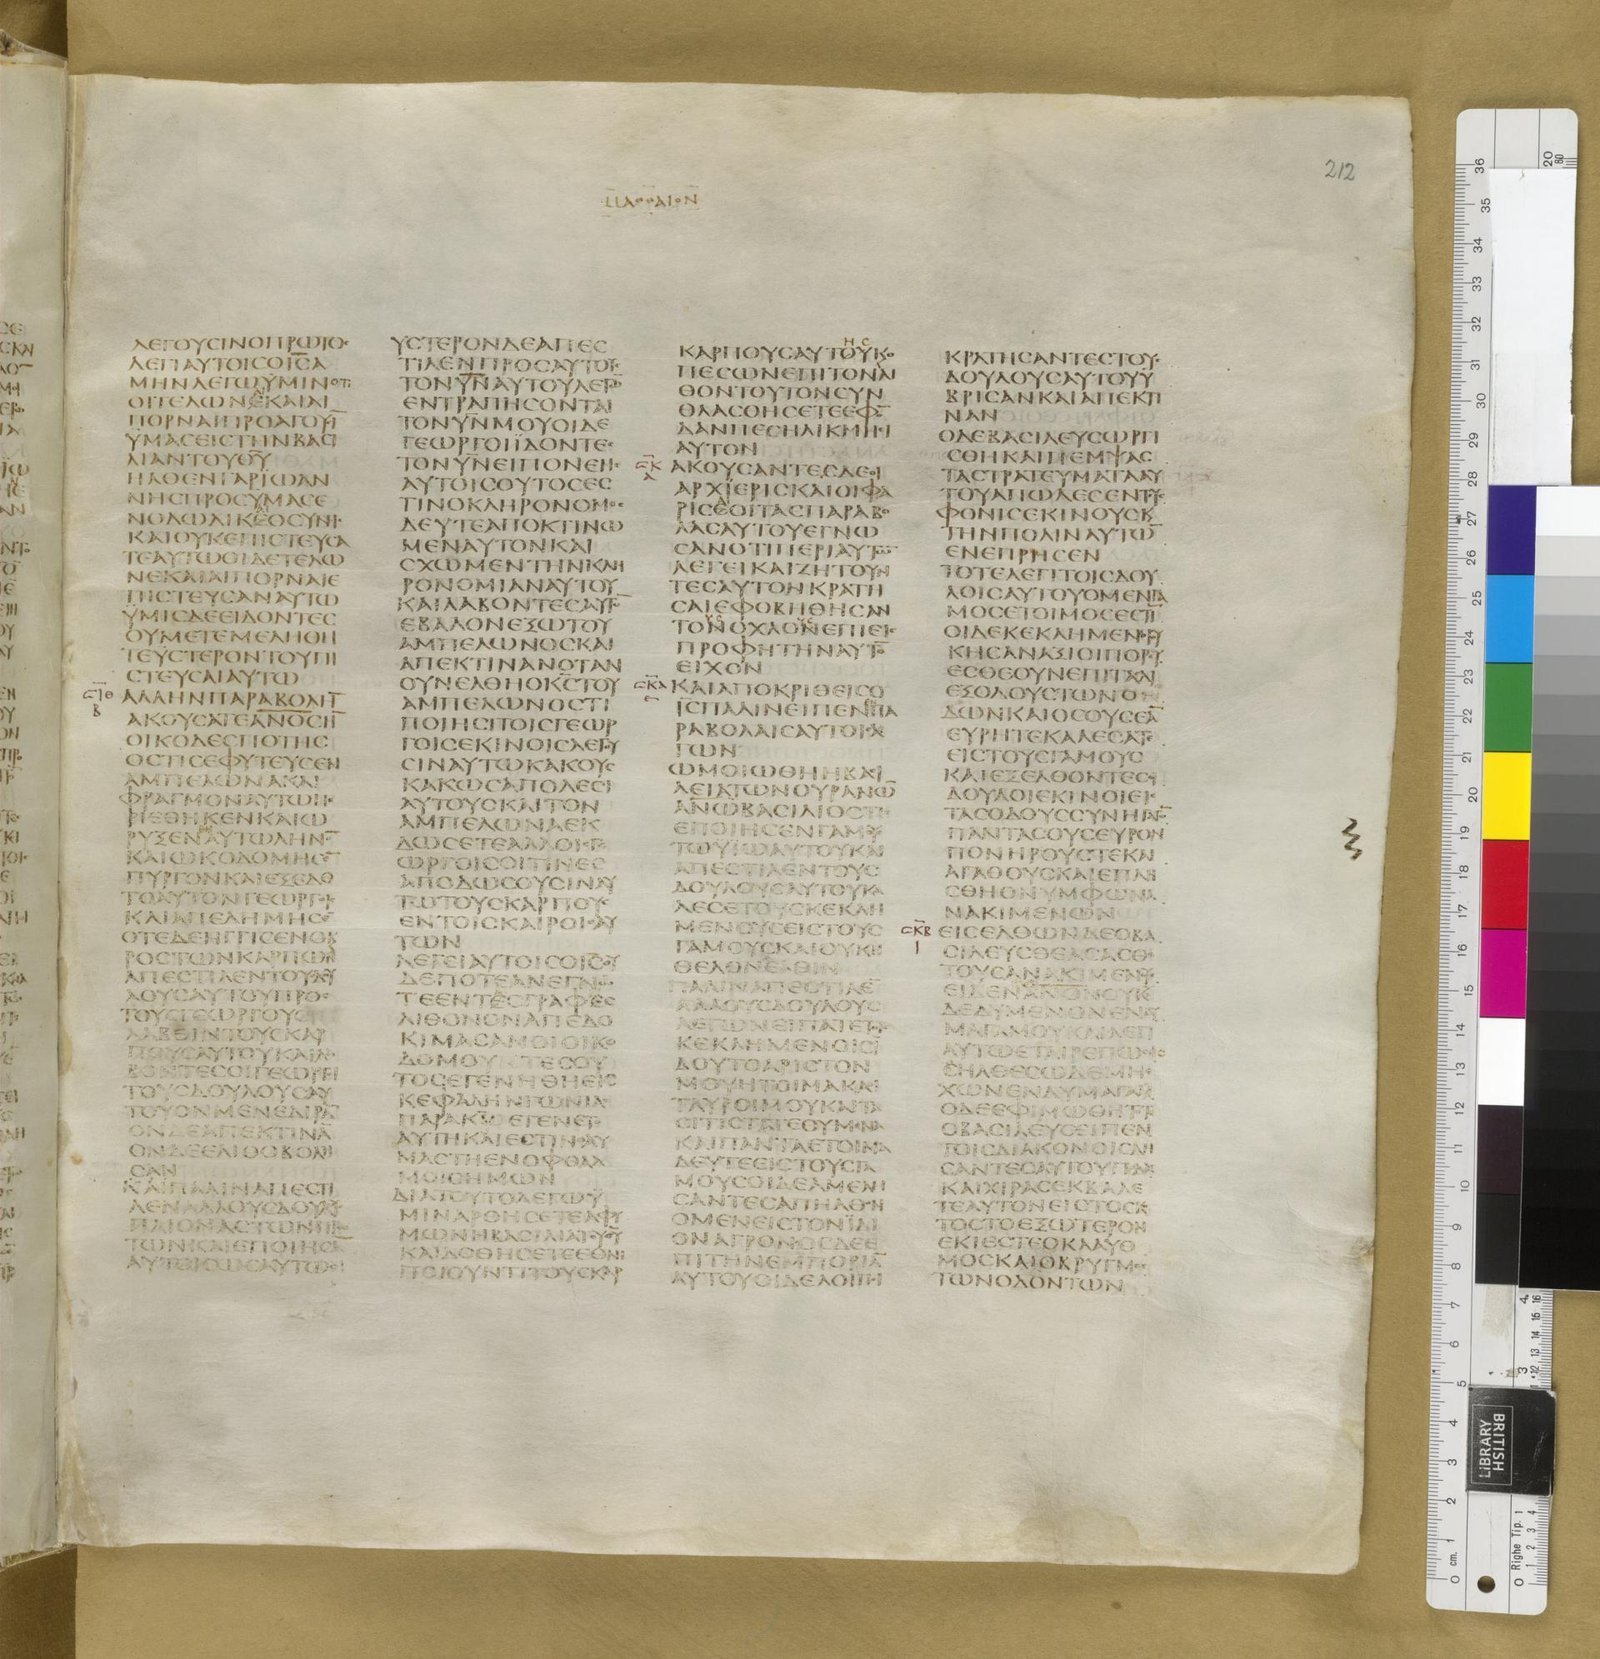 212
ΜΑΘΘΑΙΟΝ
ΛΕΓΟΥΣΙΝΟΠΡΩΤΟ
ΛΕΓΙΑΥΤΟΙΣΟΙΣΑ
ΜΗΝΛΕΓΩΥΜΙΝΟΤΙ
ΟΙΤΕΛΩΝΕΚΑΙΑΙ
ΠΟΡΝΑΙΠΡΟΑΓΟΥΣΙ
ΥΜΑΣΕΙΣΤΗΝΒΑΣΙ
ΛΙΑΝΤΟΥΘΥ
ΗΛΘΕΝΓΑΡΙΩΑΝ
ΝΗΣΠΡΟΣΥΜΑΣΕ
ΝΟΔΩΔΙΚΕΟΣΥΝΗ
ΚΑΙΟΥΚΕΠΙΣΤΕΥΣΑ
ΤΕΑΥΤΩΟΙΔΕΤΕΛΩ
ΝΕΚΑΙΑΙΠΟΡΝΑΙΕ
ΠΙΣΤΕΥΣΑΝΑΥΤΩ
ΥΜΙΣΔΕΕΙΔΟΝΤΕΣ
ΟΥΜΕΤΕΜΕΛΗΘΗ
ΤΕΥΣΤΕΡΟΝΤΟΥΠΙ
ΣΤΕΥΣΑΙΑΥΤΩ
ΑΛΛΗΝΠΑΡΑΒΟΛΗ
ΑΚΟΥΣΑΤΕΑΝΟΣΗ
ΟΙΚΟΔΕΣΠΟΤΗΣ
ΟΣΤΙΣΕΦΥΤΕΥΣΕΝ
ΑΜΠΕΛΩΝΑΚΑΙ
ΦΡΑΓΜΟΝΑΥΤΩΠΕ
ΡΙΕΘΗΚΕΝΚΑΙΩ
ΡΥΞΕΝΑΥΤΩΛΗΝΟ
ΚΑΙΩΚΟΔΟΜΗΣΕ
ΠΥΡΓΟΝΚΑΙΕΞΕΔΟ
ΤΟΑΥΤΟΝΓΕΩΡΓΟΙ
ΚΑΙΑΠΕΔΗΜΗΣΕ
ΟΤΕΔΕΗΓΓΙΣΕΝΟΚ
ΡΟΣΤΩΝΚΑΡΠΩΝ
ΑΠΕΣΤΙΛΕΝΤΟΥΣΔΟΥ
ΛΟΥΣΑΥΤΟΥΠΡΟΣ
ΤΟΥΣΓΕΩΡΓΟΥΣ
ΛΑΒΕΙΝΤΟΥΣΚΑΡ
ΠΟΥΣΑΥΤΟΥΚΑΙΛΑ
ΒΟΝΤΕΣΟΙΓΕΩΡΓΟΙ
ΤΟΥΣΔΟΥΛΟΥΣΑΥ
ΤΟΥΟΝΜΕΝΕΔΙΡΑ
ΟΝΔΕΑΠΕΚΤΙΝΑ
ΟΝΔΕΕΛΙΘΟΒΟΛΗ
ΣΑΝ
ΚΑΙΠΑΛΙΝΑΠΕΣΤΙ
ΛΕΝΑΛΛΟΥΣΔΟΥΛΟΥΣ
ΠΛΙΟΝΑΣΤΩΝΠΡΩ
ΤΩΝΚΑΙΕΠΟΙΗΣΑ
ΑΥΤΟΙΣΩΣΑΥΤΩΣ
ΥΣΤΕΡΟΝΔΕΑΠΕΣ
ΤΙΛΕΝΠΡΟΣΑΥΤΟΥΣ
ΤΟΝΥΝΑΥΤΟΥΛΕΓΩ
ΕΝΤΡΑΠΗΣΟΝΤΑΙ
ΤΟΝΥΝΜΟΥΟΙΔΕ
ΓΕΩΡΓΟΙΙΔΟΝΤΕΣ
ΤΟΝΥΝΕΙΠΟΝΕΝΕ
ΑΥΤΟΙΣΟΥΤΟΣΕΣ
ΤΙΝΟΚΛΗΡΟΝΟΜΟΣ
ΔΕΥΤΕΑΠΟΚΤΙΝΩ
ΜΕΝΑΥΤΟΝΚΑΙ
ΣΧΩΜΕΝΤΗΝΚΛΗ
ΡΟΝΟΜΙΑΝΑΥΤΟΥ
ΚΑΙΛΑΒΟΝΤΕΣΑΥΤΟ
ΕΒΑΛΟΝΕΞΩΤΟΥ
ΑΜΠΕΛΩΝΟΣΚΑΙ
ΑΠΕΚΤΙΝΑΝΟΤΑΝ
ΟΥΝΕΛΘΗΟΚΣΤΟΥ
ΑΜΠΕΛΩΝΟΣΤΙ
ΠΟΙΗΣΙΤΟΙΣΓΕΩΡ
ΓΟΙΣΕΚΙΝΟΙΣΛΕΓΟΥ
ΣΙΝΑΥΤΩΚΑΚΟΥΣ
ΚΑΚΩΣΑΠΟΛΕΣΙ
ΑΥΤΟΥΣΚΑΙΤΟΝ
ΑΜΠΕΛΩΝΑΕΚ
ΔΩΣΕΤΕΑΛΛΟΙΣΓΕ
ΩΡΓΟΙΣΟΙΤΙΝΕΣ
ΑΠΟΔΩΣΟΥΣΙΝΑΥ
ΤΩΤΟΥΣΚΑΡΠΟΥΣ
ΕΝΤΟΙΣΚΑΙΡΟΙΣΑΥ
ΤΩΝ
ΛΕΓΕΙΑΥΤΟΙΣΟΙΣΟΥ
ΔΕΠΟΤΕΑΝΕΓΝΩ
ΤΕΕΝΤΕΣΓΡΑΦΕΣ
ΛΙΘΟΝΟΝΑΠΕΔΟ
ΚΙΜΑΣΑΝΟΙΟΙΚΟ
ΔΟΜΟΥΝΤΕΣΟΥ
ΤΟΣΕΓΕΝΗΘΗΕΙΣ
ΚΕΦΑΛΗΝΓΩΝΙΑΣ
ΠΑΡΑΚΥΕΓΕΝΕΤΟ
ΑΥΤΗΚΑΙΕΣΤΙΝΘΑΥ
ΜΑΣΤΗΕΝΟΦΘΑΛ
ΜΟΙΣΗΜΩΝ
ΔΙΑΤΟΥΤΟΛΕΓΩΥ
ΜΙΝΑΡΘΗΣΕΤΕΑΦΥ
ΜΩΝΗΒΑΣΙΛΙΑΤΟΥΘΥ
ΚΑΙΔΟΘΗΣΕΤΕΕΘΝΙ
ΠΟΙΟΥΝΤΙΤΟΥΣΚΑΡ
ΚΑΡΠΟΥΣΑΥΤΟΥΚΟ
ΠΕΣΩΝΕΠΙΤΟΝΛΙ
ΘΟΝΤΟΥΤΟΝΣΥΝ
ΘΛΑΣΘΗΣΕΤΕΕΦΟ
ΔΑΝΠΕΣΗΛΙΚΜΗΣΙ
ΑΥΤΟΝ
ΑΚΟΥΣΑΝΤΕΣΔΕΟΙ
ΑΡΧΙΕΡΙΣΚΑΙΟΙΦΑ
ΡΙΣΕΟΙΤΑΣΠΑΡΑΒΟ
ΛΑΣΑΥΤΟΥΕΓΝΩ
ΣΑΝΟΤΙΠΕΡΙΑΥΤΩΝ
ΛΕΓΕΙΚΑΙΖΗΤΟΥΝ
ΤΕΣΑΥΤΟΝΚΡΑΤΗ
ΣΑΙΕΦΟΒΗΘΗΣΑΝ
ΤΟΝΟΧΛΟΝΕΠΙΕΙΣ
ΠΡΟΦΗΤΗΝΑΥΤΟ
ΕΙΧΟΝ
ΚΑΙΑΠΟΚΡΙΘΕΙΣΟ
ΙΣΠΑΛΙΝΕΙΠΕΝΠΑ
ΡΑΒΟΛΑΙΣΑΥΤΟΙΣΛΕ
ΓΩΝ
ΩΜΟΙΩΘΗΗΒΑΣΙ
ΛΕΙΑΤΩΝΟΥΡΑΝΩ
ΑΝΩΒΑΣΙΛΙΟΣΤΙΣ
ΕΠΟΙΗΣΕΝΓΑΜΟΥΣ
ΤΩΥΙΩΑΥΤΟΥΚΑΙ
ΑΠΕΣΤΙΛΕΝΤΟΥΣ
ΔΟΥΛΟΥΣΑΥΤΟΥΚΑ
ΛΕΣΕΤΟΥΣΚΕΚΛΗ
ΜΕΝΟΥΣΕΙΣΤΟΥΣ
ΓΑΜΟΥΣΚΑΙΟΥΚΗ
ΘΕΛΟΝΕΛΘΙΝ
ΠΑΛΙΝΑΠΕΣΤΙΛΕ
ΑΛΛΟΥΣΔΟΥΛΟΥΣ
ΛΕΓΩΝΕΙΠΑΤΕΤΟΙΣ
ΚΕΚΛΗΜΕΝΟΙΣΙ
ΔΟΥΤΟΑΡΙΣΤΟΝ
ΜΟΥΗΤΟΙΜΑΚΑΙ
ΤΑΥΡΟΙΜΟΥΚΑΙΤΑ
ΣΙΤΙΣΤΑΤΕΘΥΜΕΝΑ
ΚΑΙΠΑΝΤΑΕΤΟΙΜΑ
ΔΕΥΤΕΕΙΣΤΟΥΣΓΑ
ΜΟΥΣΟΙΔΕΑΜΕΛΗ
ΣΑΝΤΕΣΑΠΗΛΘΟΝ
ΟΜΕΝΕΙΣΤΟΝΙΔΙ
ΟΝΑΓΡΟΝΟΣΔΕΕ
ΠΙΤΗΝΕΜΠΟΡΙΑ
ΑΥΤΟΥΟΙΔΕΛΟΙΠΟΙ
ΚΡΑΤΗΣΑΝΤΕΣΤΟΥΣ
ΔΟΥΛΟΥΣΑΥΤΟΥΥ
ΒΡΙΣΑΝΚΑΙΑΠΕΚΤΙ
ΝΑΝ
ΟΔΕΒΑΣΙΛΕΥΣΩΡΓΙ
ΣΘΗΚΑΙΠΕΜΨΑΣ
ΤΑΣΤΡΑΤΕΥΜΑΤΑΑΥ
ΤΟΥΑΠΩΛΕΣΕΝΤΟΥΣ
ΦΟΝΙΣΕΚΙΝΟΥΣΚ
ΤΗΝΠΟΛΙΝΑΥΤΩ
ΕΝΕΠΡΗΣΕΝ
ΤΟΤΕΛΕΓΙΤΟΙΣΔΟΥ
ΛΟΙΣΑΥΤΟΥΟΜΕΝΓΑ
ΜΟΣΕΤΟΙΜΟΣΕΣΤΙ
ΟΙΔΕΚΕΚΛΗΜΕΝΟΙΟΥ
ΚΗΣΑΝΑΞΙΟΙΠΟΡΕΥ
ΕΣΘΕΟΥΝΕΠΙΤΑΣ
ΕΞΟΔΟΥΣΤΩΝΟ
ΔΩΝΚΑΙΟΣΟΥΣΕΑ
ΕΥΡΗΤΕΚΑΛΕΣΑΤΕ
ΕΙΣΤΟΥΣΓΑΜΟΥΣ
ΚΑΙΕΞΕΛΘΟΝΤΕΣΟΙ
ΔΟΥΛΟΙΕΚΙΝΟΙΕΙΣ
ΤΑΣΟΔΟΥΣΣΥΝΗΓΑΓΟ
ΠΑΝΤΑΣΟΥΣΕΥΡΟΝ
ΠΟΝΗΡΟΥΣΤΕΚΑΙ
ΑΓΑΘΟΥΣΚΑΙΕΠΛΗ
ΣΘΗΟΝΥΜΦΩΝΑ
ΝΑΚΙΜΕΝΩΝ
ΕΙΣΕΛΘΩΝΔΕΟΒΑ
ΣΙΛΕΥΣΘΕΑΣΑΣΘΕ
ΤΟΥΣΑΝΑΚΙΜΕΝΟΥΣ
ΕΙΔΕΝΑΝΟΝΟΥΚΕ
ΔΕΔΥΜΕΝΟΝΕΝΔΥ
ΜΑΓΑΜΟΥΚΑΙΛΕΓΙ
ΑΥΤΩΕΤΑΙΡΕΠΩΣ
ΕΙΣΗΛΘΕΣΩΔΕΜΗΕ
ΧΩΝΕΝΔΥΜΑΓΑΜΟΥ
ΟΔΕΕΦΙΜΩΘΗΤΟΤΕ
ΟΒΑΣΙΛΕΥΣΕΙΠΕΝ
ΤΟΙΣΔΙΑΚΟΝΟΙΣΔΗ
ΣΑΝΤΕΣΑΥΤΟΥΠΟΔΑΣ
ΚΑΙΧΙΡΑΣΕΚΒΑΛΕ
ΤΕΑΥΤΟΝΕΙΣΤΟΣΚ
ΤΟΣΤΟΕΞΩΤΕΡΟΝ
ΕΚΙΕΣΤΕΟΚΛΑΥΘ
ΜΟΣΚΑΙΟΒΡΥΓΜΟΣ
ΤΩΝΟΔΟΝΤΩΝ
BRITISH
LIBRARY